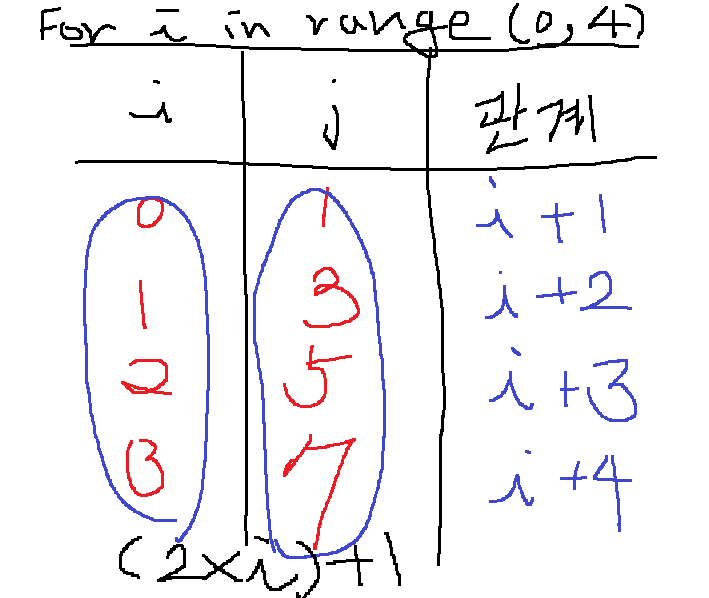 For i in range (0, 4)
i j 관계
0 1 i+1
1 3 i+2
2 5 i+3
3 7 i+4
(2×i)+1